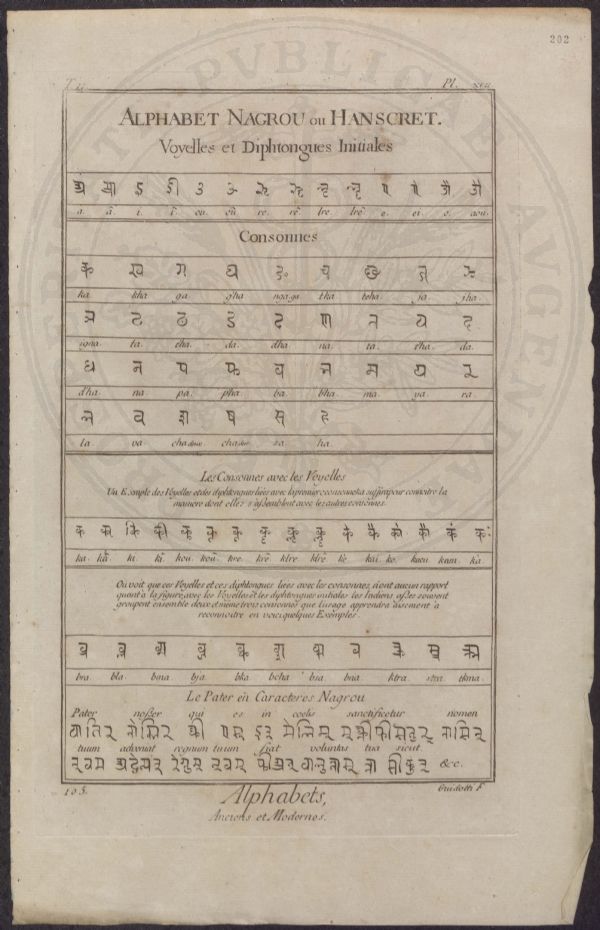 202
T. II.
Pl.
ALPHABET NAGROU ou HANSCRET.
Voyelles et Diphtongues Initiales
अ आ इ ई उ ऊ ऋ ॠ ऌ ॡ ए ऐ ओ औ
a. â. i. î. ou. oû. re. rê. lre. lrê. e. ei. o. aou.
Consonnes
क ख ग घ ङ च छ ज झ
ka. kha. ga. gha. nga. tcha. ja. jha.
ञ ट ठ ड ढ ण त थ द
igna. ta. tha. da. dha. na. ta. tha. da.
ध न प फ ब भ म य र
d'ha. na. pa. pha. ba. bha. ma. ya. ra.
ल व श ष स ह
la. va. cha cha sa. ha.
Les Consonnes avec les Voyelles
Un Exemple des Voyelles et des diphtongues liées avec la premiere consonne ka suffira pour connoitre la
maniere dont elles s'assemblent avec les autres consonnes.
क का कि की कु कू कृ कॄ कॢ कॣ के कै को कौ कं कः
ka. kâ. ki. kî. kou. koû. kre. krê. klre. klrê. ke. kai. ko. kaou. kam. ka.
On voit que ces Voyelles et ces diphtongues liées avec les consonnes, n'ont aucun rapport
quant à la figure avec les Voyelles et les diphtongues initiales les Indiens assés souvent
groupent ensemble deux et même trois consonnes que l'usage apprendra aisement à
reconnoitre en voici quelques Exemples.
bra. bla. bma. bja. bka. bcha. bsa. bna. ktra. stra. tkma.
Le Pater en Caracteres Nagrou
Pater noster qui es in coelis sanctificetur nomen
tuum adveniat regnum tuum fiat voluntas tua sicut
&c.
105.
Guidotti F.
Alphabets,
Anciens et Modernes.